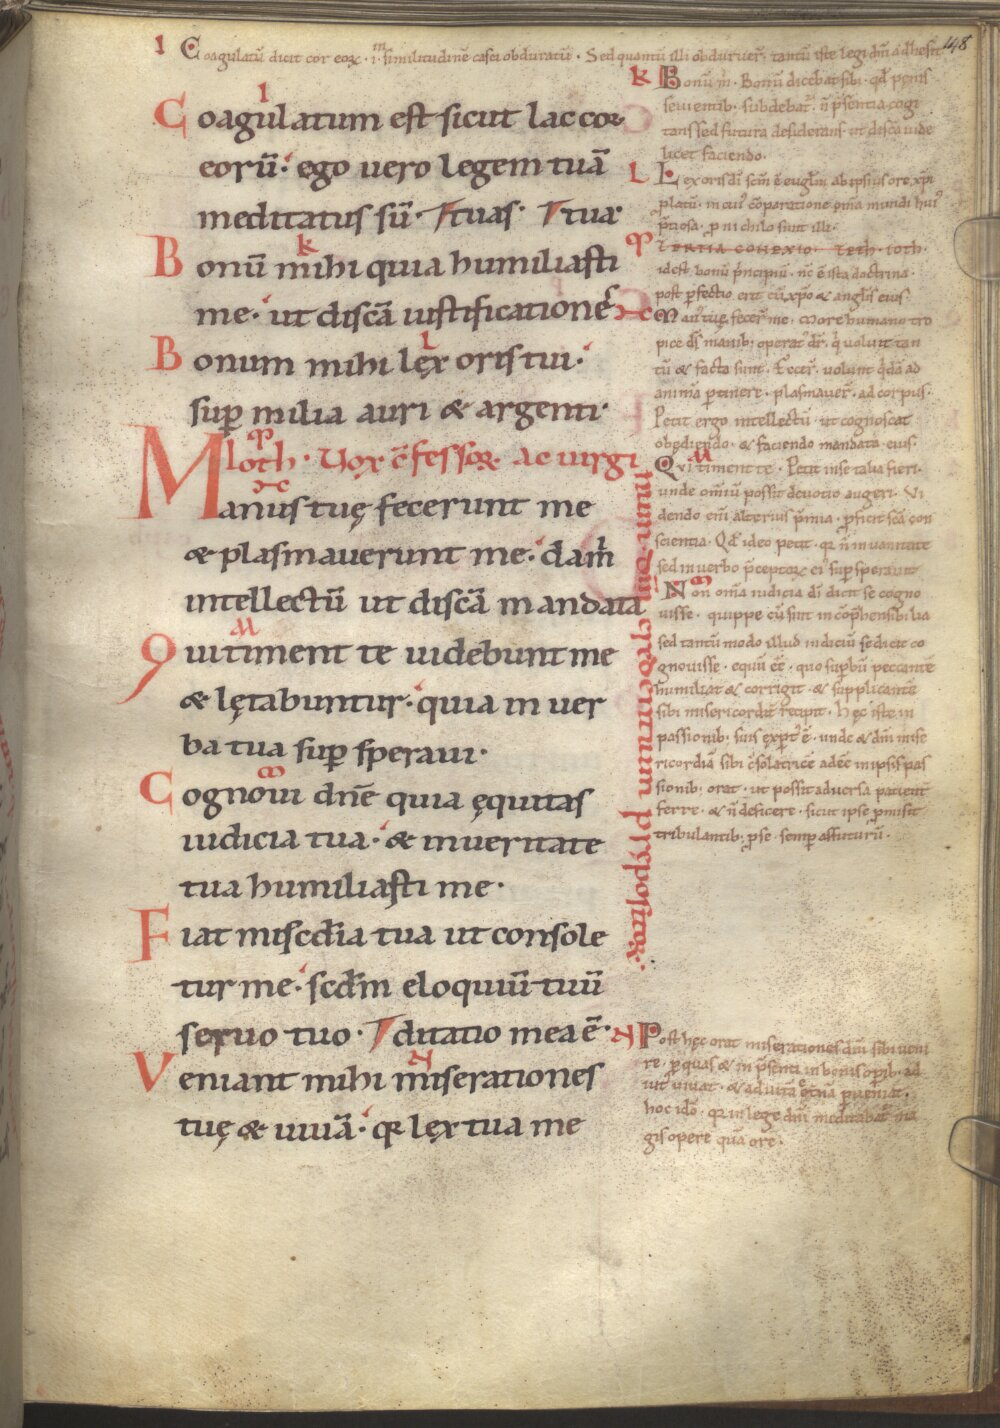 148
I Coagulatū dicit cor eorꝝ · i · similitudinē casei obduratū · Sed quantū illi obduruer̄ · tantū iste legi dn̄i adhesit
I
Coagulatum est sicut lac cor
eorū · ego vero legem tuā
meditatus sū · tuas · tua
k
Bonū mihi quia humiliasti
me · ut discā iustificationes
l
Bonum mihi lęx oris tui ·
sup milia auri & argenti ·
Ioth · Vox c̄fessorꝝ ac virgi
num dn̄i erogentium prepositorꝝ
Manus tuę fecerunt me
& plasmaverunt me · da m̄
intellectū ut discā mandata
M
Qui timent te videbunt me
& lętabuntur · quia in ver
ba tua sup speravi ·
Cognovi dn̄e quia ęquitas
iudicia tua · & in veritate
tua humiliasti me ·
Fiat miscd̄ia tua ut console
tur me · scd̄m eloquiū tuū
servo tuo · ditatio mea ē ·
N
Veniant mihi miserationes
tuę & vivā · qꝛ lęx tua me
k Bonū m̄ · Bonū dicebat sibi · qd̄ penis
sevientib; subdebat̄ · n̄ p̄sentia cogi
tans sed futura desiderans · ut discā vide
licet faciendo ·
L Lex oris di scm̄ ē eugl̄m ab ipsius ore xp̄i
platū · in cui' cōparatione om̄a mundi hui'
p̄tiosa · p nichilo sunt illi ·
TERTIA CONEXIO · Teth · ioth ·
idest bonū p̄ncipiū · nc̄ ē ista doctrina ·
post pfectio erit cū xp̄o & angl̄is eius ·
Manꝰ tuę fecer̄ me · More humano tro
pice ds̄ manib; operat' dr̄ · q̄ voluit tan
tū & facta sunt · Fecer̄ · volunt q̄dā ad
animā ptinere · plasmaver̄ · ad corpus ·
Petit ergo intellectū · ut cognoscat
obediendo · & faciendo mandata eius ·
Qui timent te · Petit in se talia fieri ·
unde om̄iū possit devotio augeri · Vi
dendo eni alterius p̄mia · pficit sc̄a con
scientia · Qd̄ ideo petit · qꝛ n̄ in vanitate
sed in verbo p̄ceptorꝝ ei' sup speravit
Non om̄a iudicia di dicit se cogno
visse · quippe cū sint incōp̄hensibilia
sed tantū modo illud iudiciū se dicit co
gnovisse · equū ēē · quo supbū peccantē
humiliat & corrigit · & supplicantē
sibi misericordit̄ recipit · Hęc iste in
passionib; suis expt' ē · unde & dn̄i mise
ricordiā sibi c̄solatricē adeē in ipsis pas
sionib; orat · ut possit adversa patient̄
ferre · & n̄ deficere · sicut ipse p̄misit
tribulantib; p se semp affuturū ·
N Post hęc orat miserationes dn̄i sibi veni
re · p quas & in p̄senti in bonis opib; ad
iut' vivat · & ad vitā etnā pveniat ·
hoc idō · qꝛ in lege dn̄i meditabat̄ ma
gis opere quā ore ·